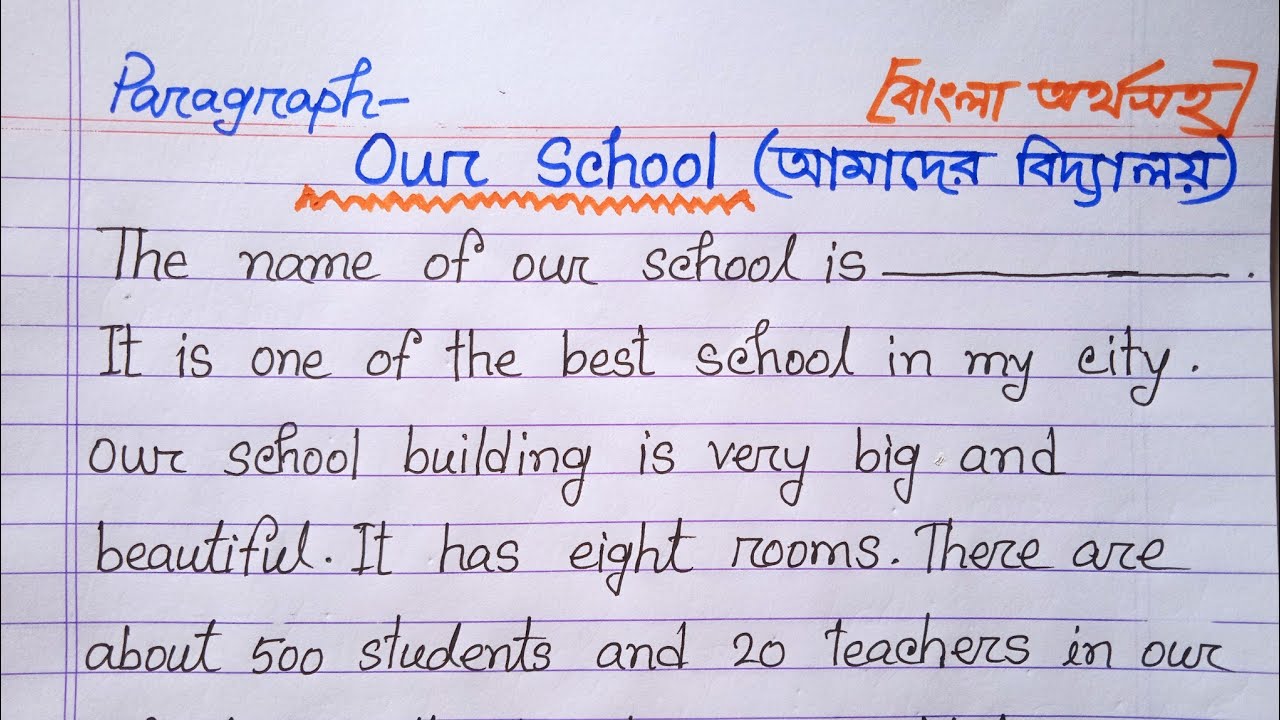 Paragraph-
[বাংলা অর্থসহ]
Our School (আমাদের বিদ্যালয়)
The name of our school is ____________.
It is one of the best school in my city.
our school building is very big and
beautiful. It has eight rooms. There are
about 500 students and 20 teachers in our